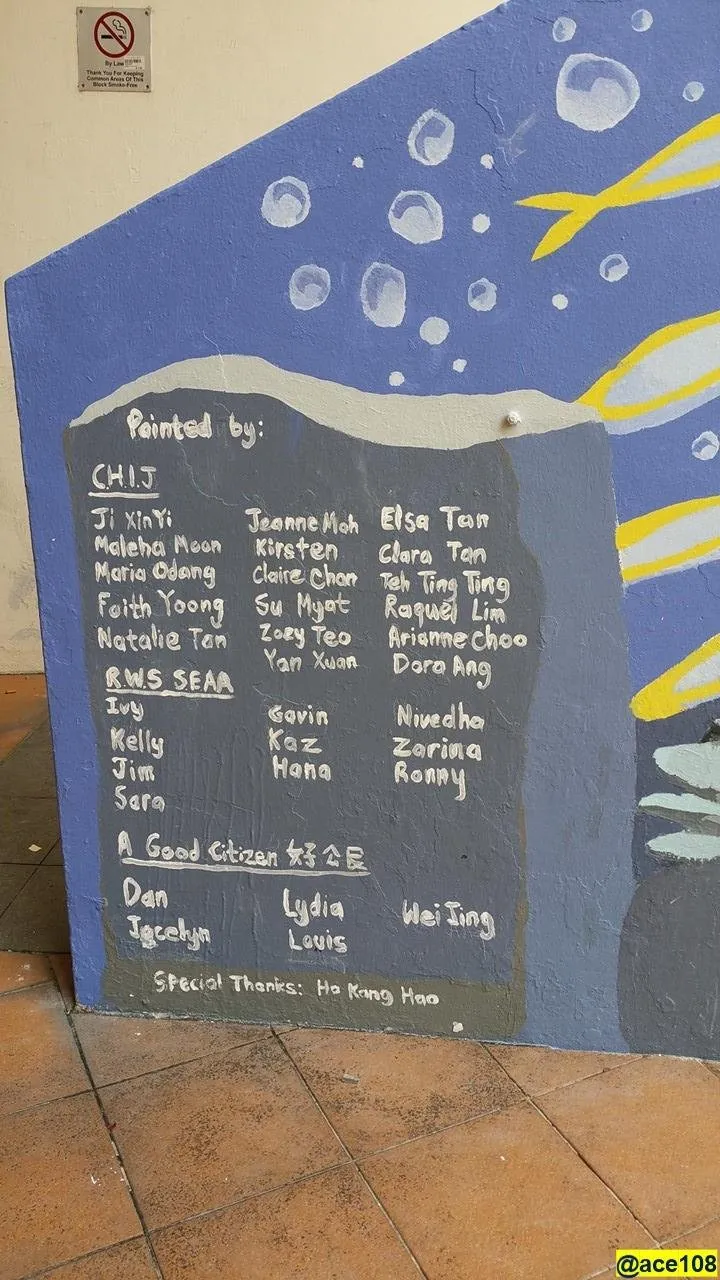 By Law
Thank You For Keeping
Common Areas Of This
Block Smoke-Free
Painted by:
C.H.I.J
Ji XinYi Jeanne Moh Elsa Tan
Maleha Moon Kirsten Clara Tan
Maria Odang Claire Chan Teh Ting Ting
Faith Yoong Su Myat Raquel Lim
Natalie Tan Zoey Teo Arianne Choo
Yan Xuan Dora Ang
R.W.S SEAA
Ivy Gavin Nivedha
Kelly Kaz Zarina
Jim Hana Ronny
Sara
A Good Citizen 好公民
Dan Lydia Wei Jing
Jocelyn Louis
Special Thanks: Ho Kang Hao
@ace108